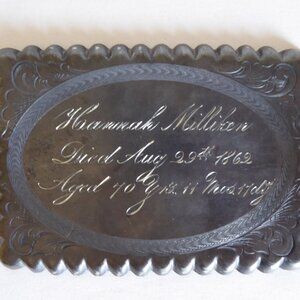 Hannah Milliken
Died Aug 29th 1862
Aged 70 Yrs. 11 Mos. 17 dys